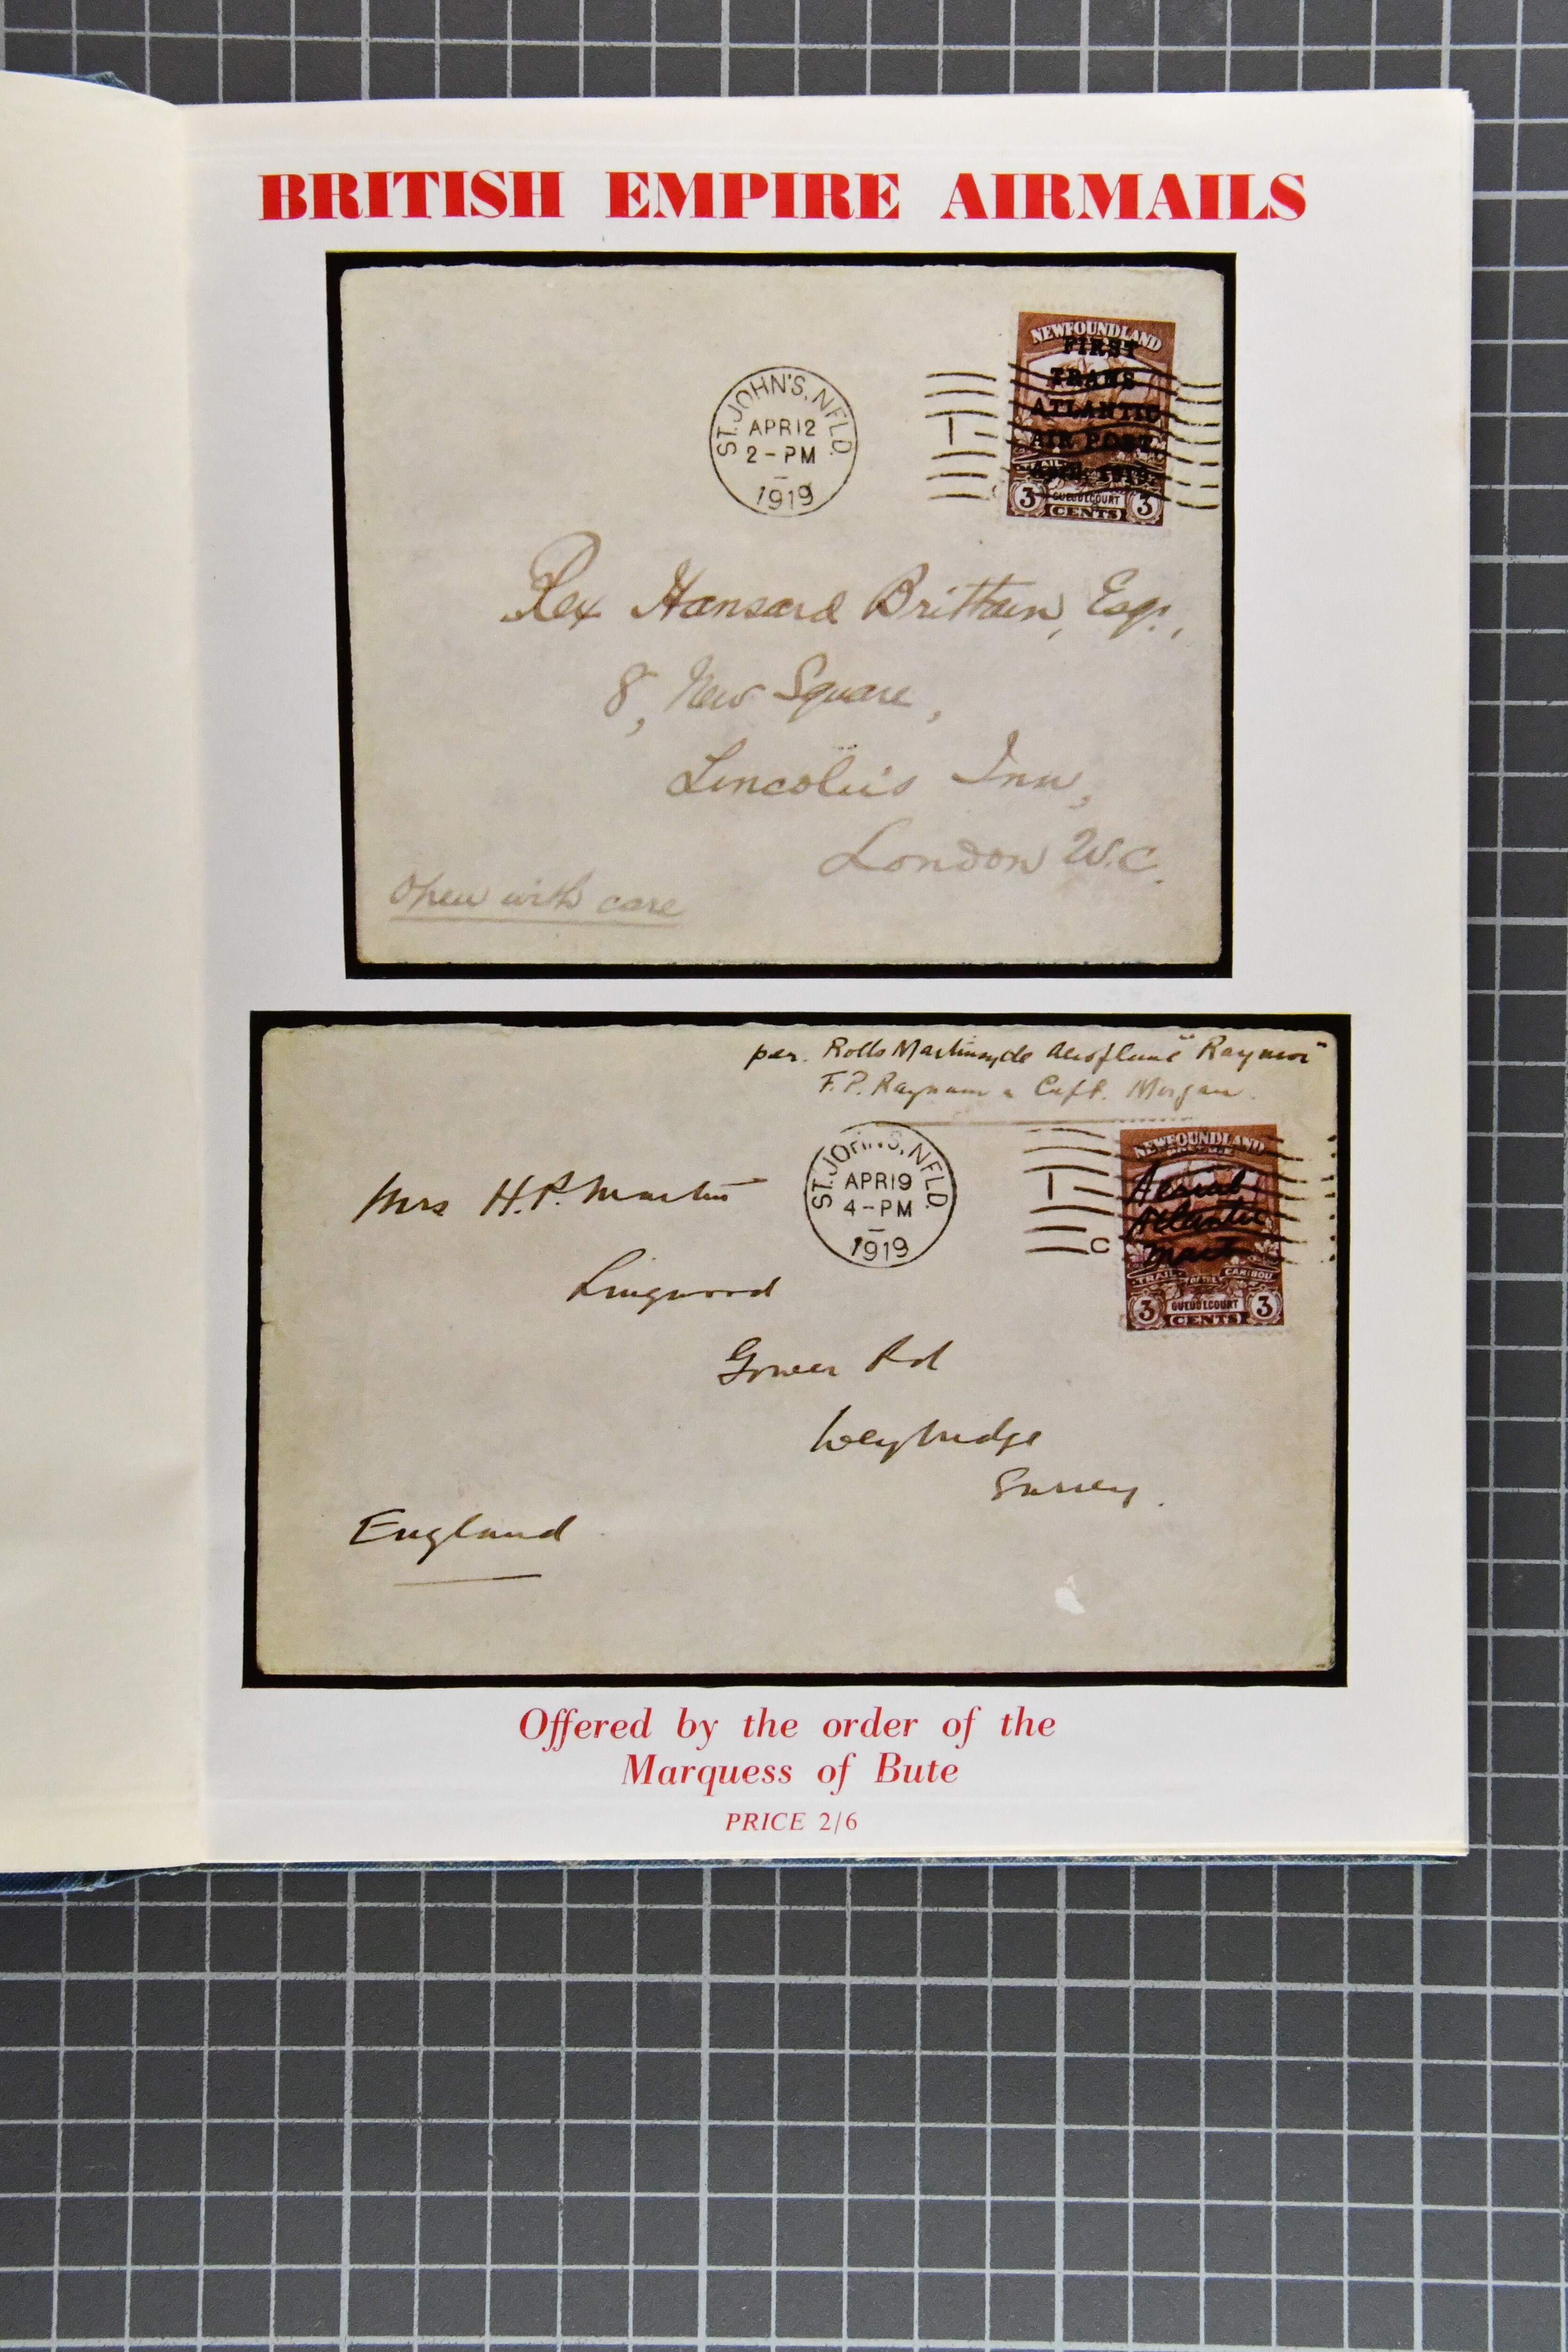 BRITISH EMPIRE AIRMAILS
NEWFOUNDLAND
FIRST
TRANS
ATLANTIC
AIR POST
APRIL 1919.
3 GUEUDECOURT 3
CENTS
ST. JOHN'S, NFLD.
APR 12
2-PM
1919
Rex Hansard Brittain, Esq.,
8, New Square,
Lincoln's Inn,
London W.C.
Open with care
per. Rolls Martinsyde Aeroplane "Raymor"
F.P. Raynham & Capt. Morgan.
ST. JOHN'S, NFLD.
APR 19
4-PM
1919
C
NEWFOUNDLAND
Aerial
Atlantic
Mail
TRAIL OF THE CARIBOU
3 GUEUDECOURT 3
CENTS
Mrs H.P. Martin
Lingwood
Gower Rd
Weybridge
Surrey.
England
Offered by the order of the
Marquess of Bute
PRICE 2/6